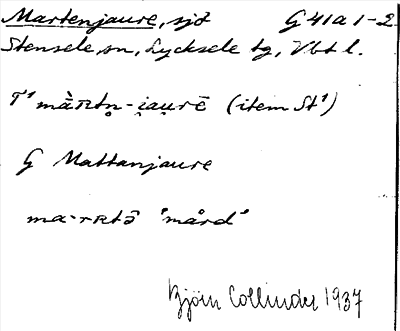 Martenjaure, sjö G 41a 1-2
Stensele sn, Lycksele tg, Vbt l.
T¹ màʀtn̥-i̯au̯rē (item St¹)
G Mattanjaure
ma·rʀtə̄ 'mård'
Björn Collinder 1937